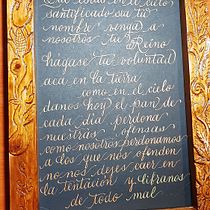 que estas en el cielo
santificado sea tu
nombre venga a
nosotros tu Reino
hagase tu voluntad
aca en la tierra
como en el cielo
danos hoy el pan de
cada dia perdona
nuestras ofensas
como nosotros perdonamos
a los que nos ofenden
no nos dejes caer en
la tentacion y libranos
de todo mal